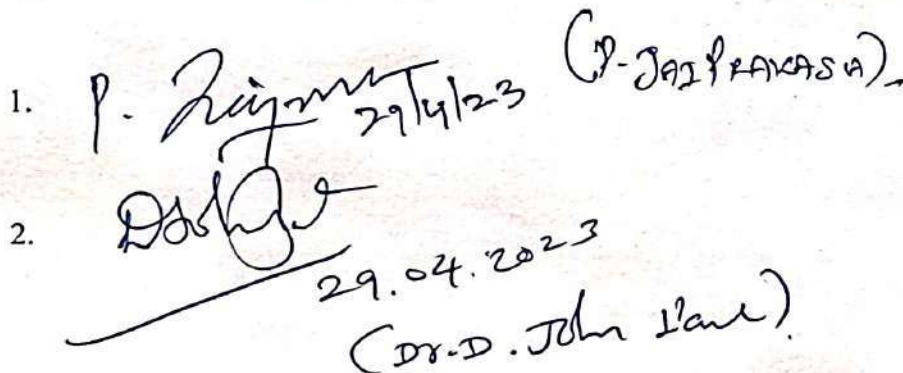 1. P. 29/4/23 (P. JAIPRAKASH)
2.
29.04.2023
(Dr. D. John Paul)